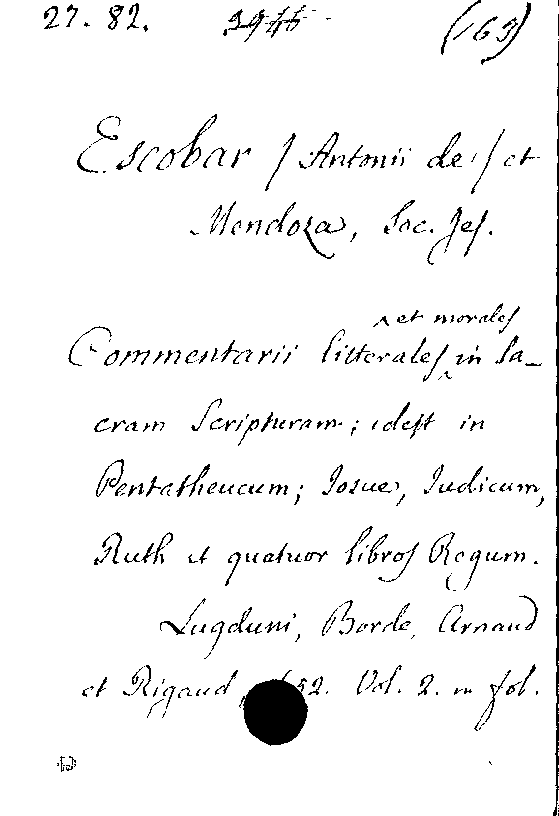 27. 82. (163)
Escobar / Antonii de / et
Mendoza, Soc. Jes.
^ et morales
Commentarii litterales ^ in Sa-
cram Scripturam; idest in
Pentatheucum; Iosue, Iudicum,
Ruth et quatuor libros Regum.
Lugduni, Borde, Arnaud
et Rigaud, 52. Vol. 2. in fol.